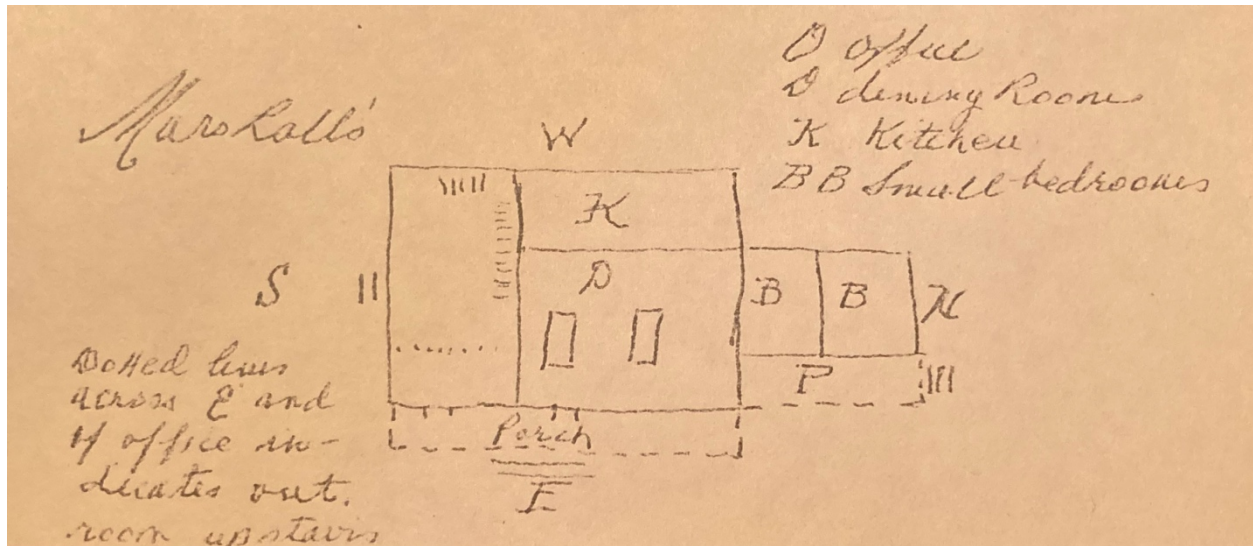 O office
D dining Room
K Kitchen
BB Small bedrooms
Marshall's
W
K
S
D
B B N
P
Porch
E
Dotted lines
across E end
of office in-
dicates out.
room upstairs